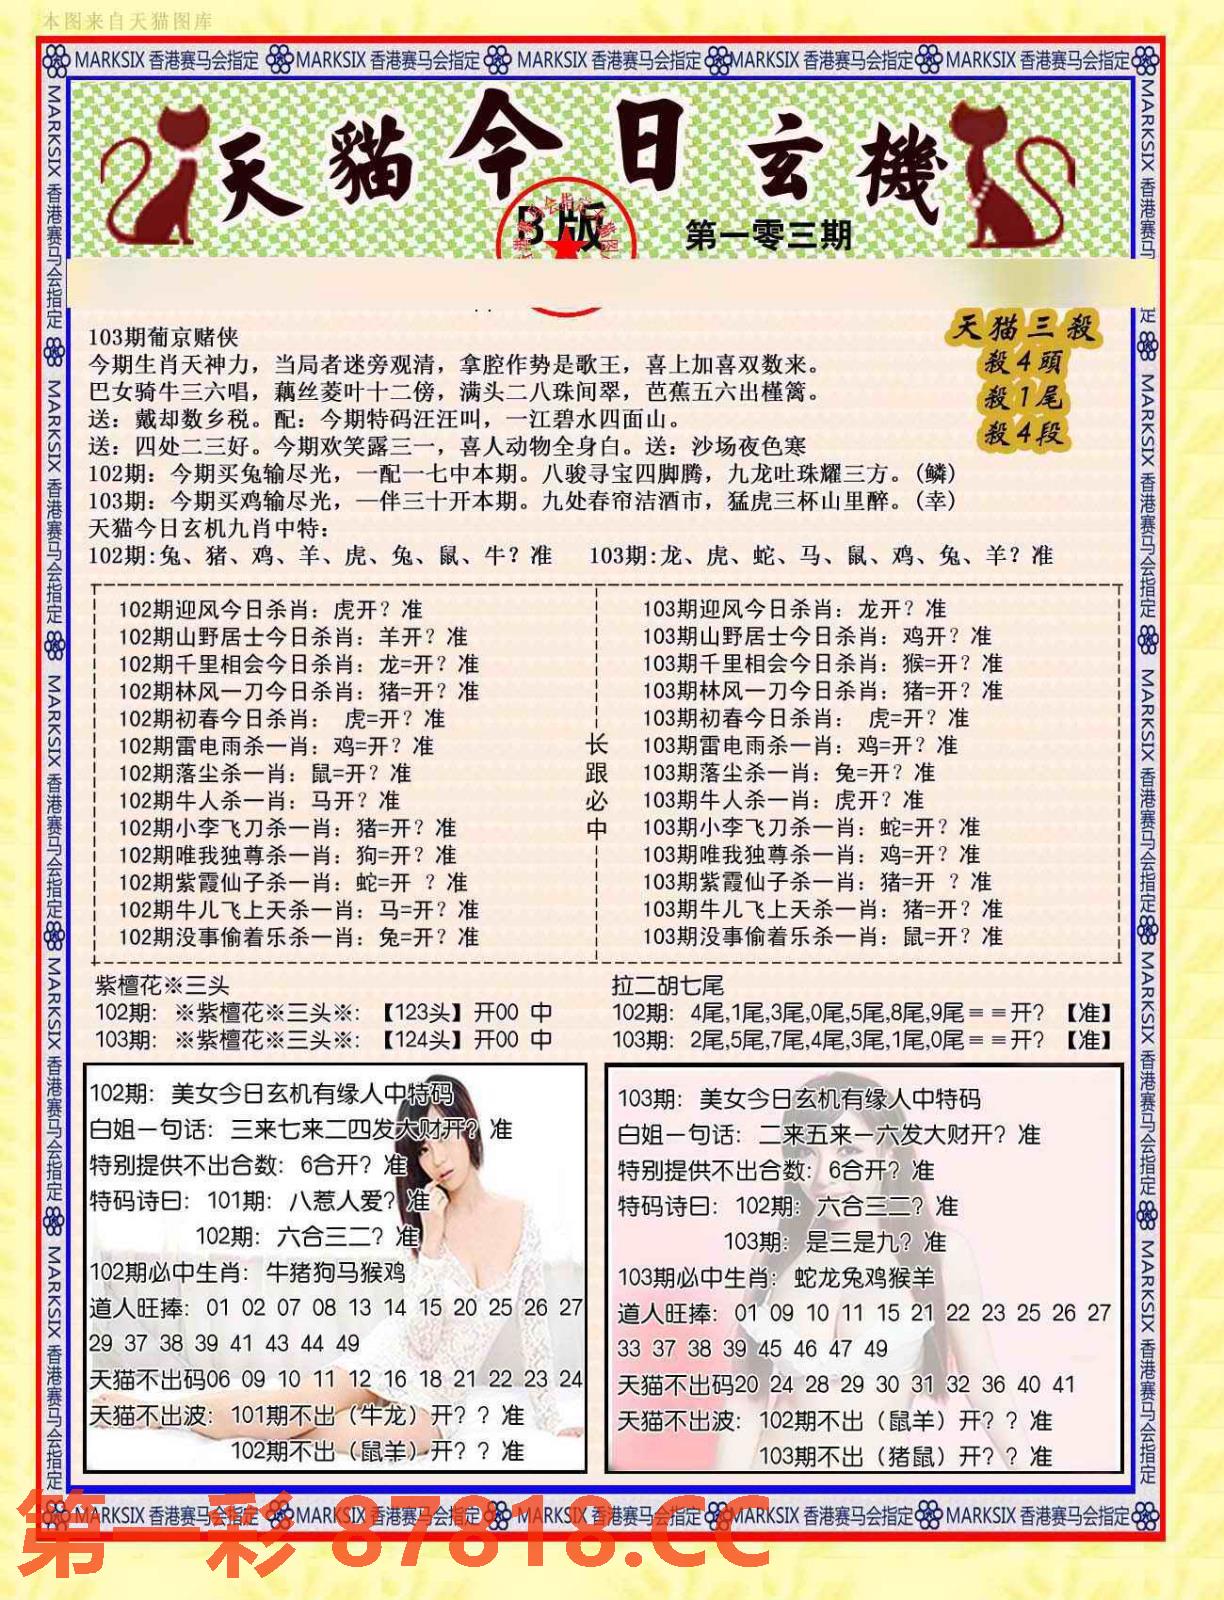 本图来自天猫图库
MARKSIX 香港赛马会指定 MARKSIX 香港赛马会指定 MARKSIX 香港赛马会指定 MARKSIX 香港赛马会指定 MARKSIX 香港赛马会指定
天貓今日玄機
B版
第一零三期
天猫三殺
殺4頭
殺1尾
殺4段
103期葡京赌侠
今期生肖天神力，当局者迷旁观清，拿腔作势是歌王，喜上加喜双数来。
巴女骑牛三六唱，藕丝菱叶十二傍，满头二八珠间翠，芭蕉五六出槿篱。
送：戴却数乡税。配：今期特码汪汪叫，一江碧水四面山。
送：四处二三好。今期欢笑露三一，喜人动物全身白。送：沙场夜色寒
102期：今期买兔输尽光，一配一七中本期。八骏寻宝四脚腾，九龙吐珠耀三方。(鳞)
103期：今期买鸡输尽光，一伴三十开本期。九处春帘洁酒市，猛虎三杯山里醉。(幸)
天猫今日玄机九肖中特：
102期:兔、猪、鸡、羊、虎、兔、鼠、牛？准 103期:龙、虎、蛇、马、鼠、鸡、兔、羊？准
102期迎风今日杀肖：虎开？准
102期山野居士今日杀肖：羊开？准
102期千里相会今日杀肖：龙=开？准
102期林风一刀今日杀肖：猪=开？准
102期初春今日杀肖： 虎=开？准
102期雷电雨杀一肖：鸡=开？准
102期落尘杀一肖：鼠=开？准
102期牛人杀一肖：马开？准
102期小李飞刀杀一肖：猪=开？准
102期唯我独尊杀一肖：狗=开？准
102期紫霞仙子杀一肖：蛇=开 ？准
102期牛儿飞上天杀一肖：马=开？准
102期没事偷着乐杀一肖：兔=开？准
长跟必中
103期迎风今日杀肖：龙开？准
103期山野居士今日杀肖：鸡开？准
103期千里相会今日杀肖：猴=开？准
103期林风一刀今日杀肖：猪=开？准
103期初春今日杀肖： 虎=开？准
103期雷电雨杀一肖：鸡=开？准
103期落尘杀一肖：兔=开？准
103期牛人杀一肖：虎开？准
103期小李飞刀杀一肖：蛇=开？准
103期唯我独尊杀一肖：鸡=开？准
103期紫霞仙子杀一肖：猪=开 ？准
103期牛儿飞上天杀一肖：猪=开？准
103期没事偷着乐杀一肖：鼠=开？准
紫檀花※三头
102期：※紫檀花※三头※：【123头】开00 中
103期：※紫檀花※三头※：【124头】开00 中
拉二胡七尾
102期：4尾,1尾,3尾,0尾,5尾,8尾,9尾＝＝开？【准】
103期：2尾,5尾,7尾,4尾,3尾,1尾,0尾＝＝开？【准】
102期：美女今日玄机有缘人中特码
白姐一句话：三来七来二四发大财开？准
特别提供不出合数：6合开？准
特码诗曰：101期：八惹人爱？准
102期：六合三二？准
102期必中生肖：牛猪狗马猴鸡
道人旺捧：01 02 07 08 13 14 15 20 25 26 27
29 37 38 39 41 43 44 49
天猫不出码06 09 10 11 12 16 18 21 22 23 24
天猫不出波：101期不出（牛龙）开？？准
102期不出（鼠羊）开？？准
103期：美女今日玄机有缘人中特码
白姐一句话：二来五来一六发大财开？准
特别提供不出合数：6合开？准
特码诗曰：102期：六合三二？准
103期：是三是九？准
103期必中生肖：蛇龙兔鸡猴羊
道人旺捧：01 09 10 11 15 21 22 23 25 26 27
33 37 38 39 45 46 47 49
天猫不出码20 24 28 29 30 31 32 36 40 41
天猫不出波：102期不出（鼠羊）开？？准
103期不出（猪鼠）开？？准
MARKSIX 香港赛马会指定 MARKSIX 香港赛马会指定 MARKSIX 香港赛马会指定 MARKSIX 香港赛马会指定 MARKSIX 香港赛马会指定
第一彩 87818.CC